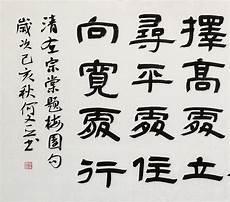 擇高處立
尋平處住
向寬處行
清左宗棠題梅園句
歲次己亥秋何文書